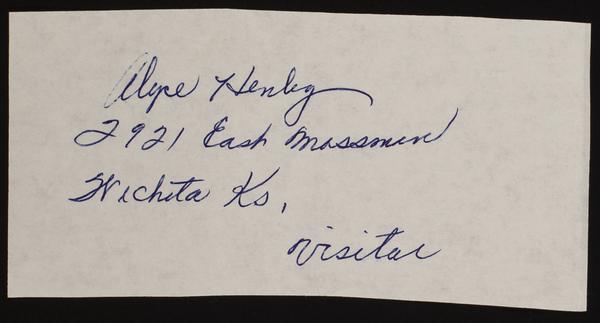 Alyce Henley
2921 East Mossman
Wichita Ks,
Visitor